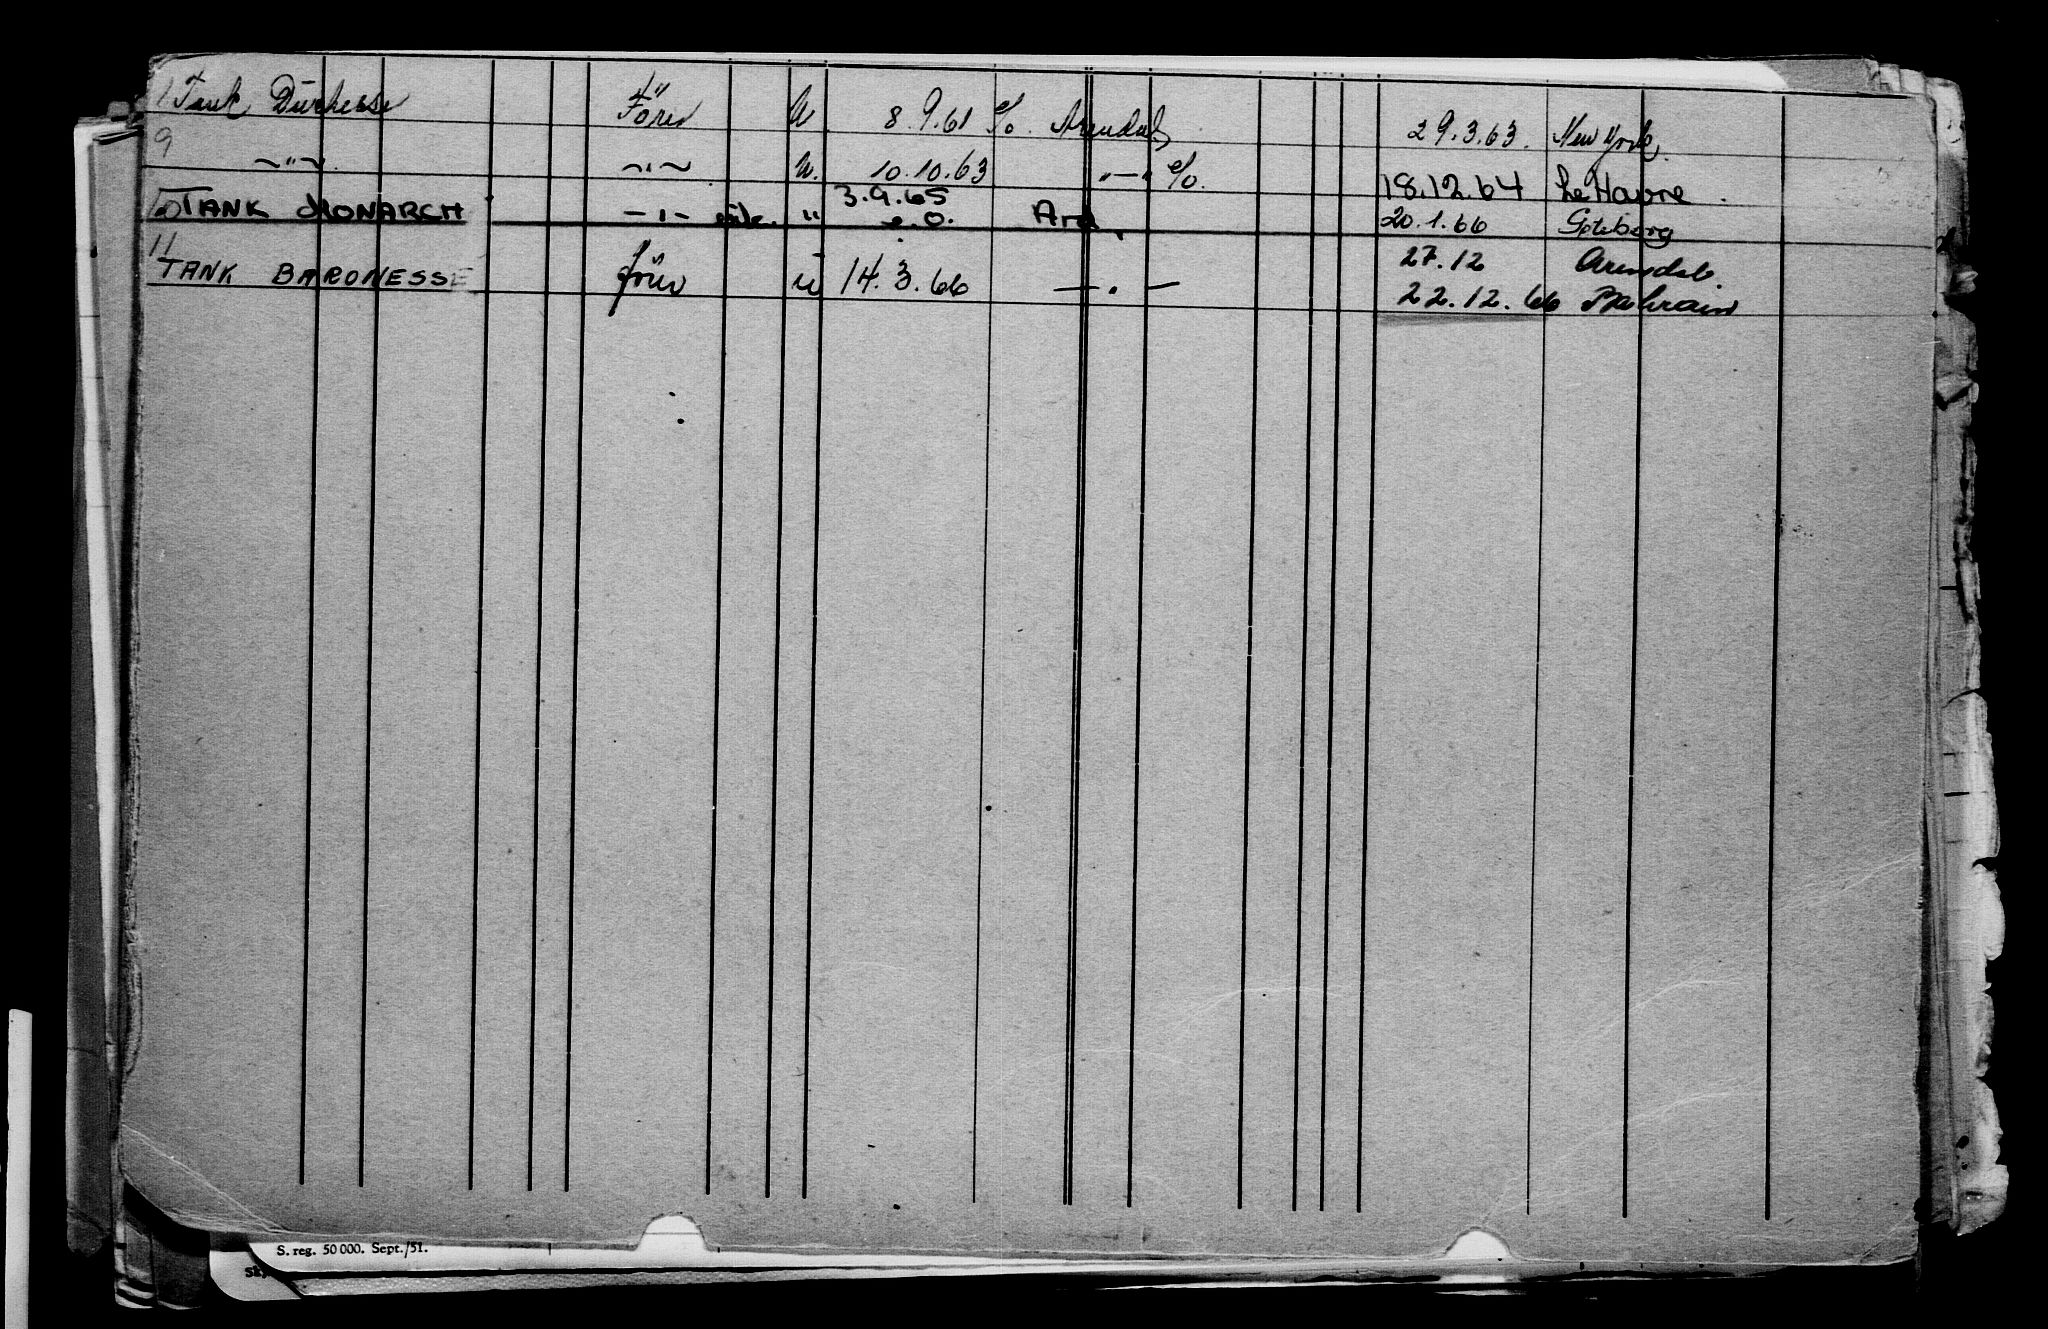 1 Tank Duchesse Förer U 8.9.61 c/o. Arendal 29.3.63. New York.
9 ~"~ ~"~ U. 10.10.63 "—" c/o. 18.12.64 Le Havre.
10 TANK MONARCH —"— " 3.9.65 e.O. Ard. 20.1.66 Göteborg
27.12 Arendal.
11 TANK BARONESSE förer U 14.3.66 — " — 22.12.66 Bahrain
S. reg. 50 000. Sept./51.